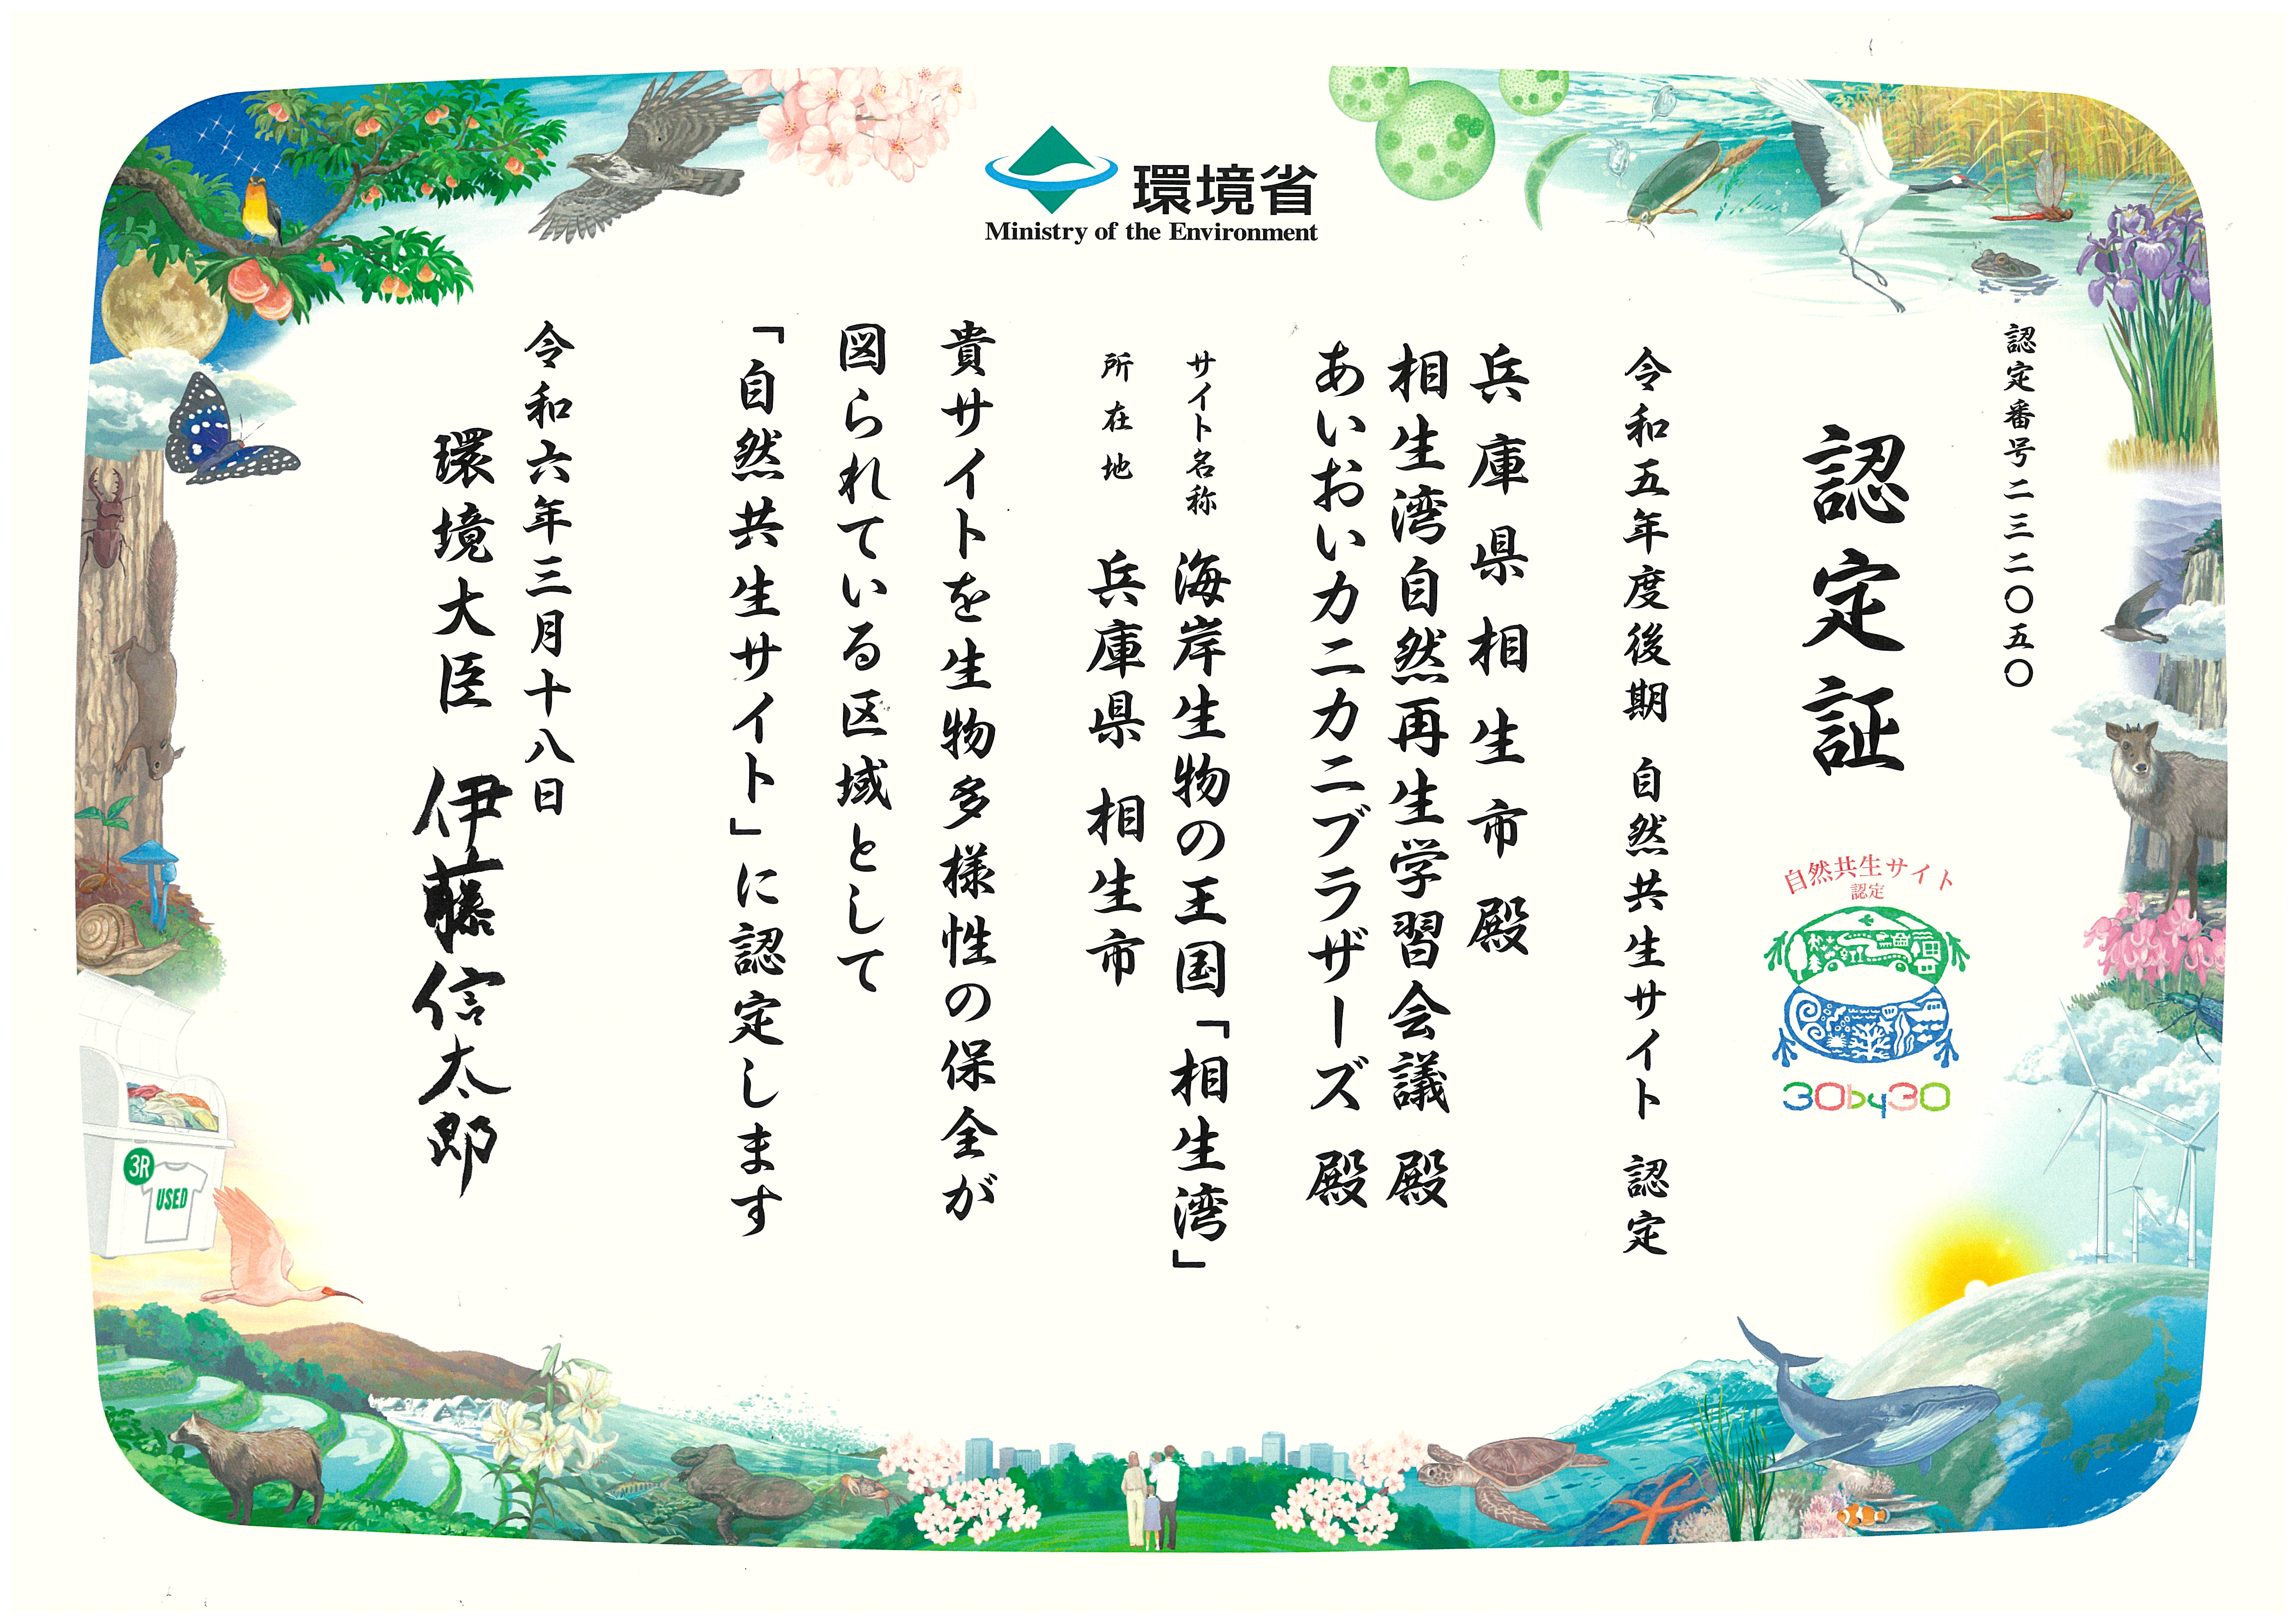 環境省
Ministry of the Environment
認定番号二三二〇五〇
認定証
自然共生サイト
認定
30by30
令和五年度後期 自然共生サイト 認定
兵庫県相生市 殿
相生湾自然再生学習会議 殿
あいおいカニカニブラザーズ 殿
サイト名称 海岸生物の王国「相生湾」
所在地 兵庫県 相生市
貴サイトを生物多様性の保全が
図られている区域として
「自然共生サイト」に認定します
令和六年三月十八日
環境大臣 伊藤信太郎
3R
USED